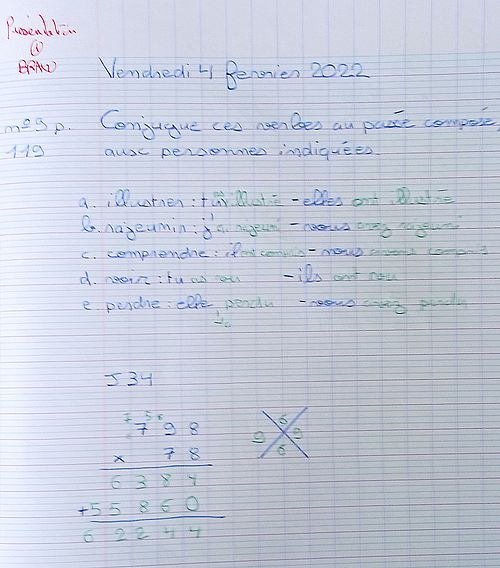 Présentation
@
BRAVO
Vendredi 4 février 2022
n°9 p. 119
Conjugue ces verbes au passé composé
aux personnes indiquées.
a. illustrer : tu as illustré - elles ont illustré
b. rajeunir : j'ai rajeuni - vous avez rajeuni
c. comprendre : il a compris - nous avons compris
d. voir : tu as vu - ils ont vu
e. perdre : elle a perdu - vous avez perdu
J 34
7 5 6
7 9 8
x 7 8
6 3 8 4
+ 5 5 8 6 0
6 2 2 4 4
6
9 9
6